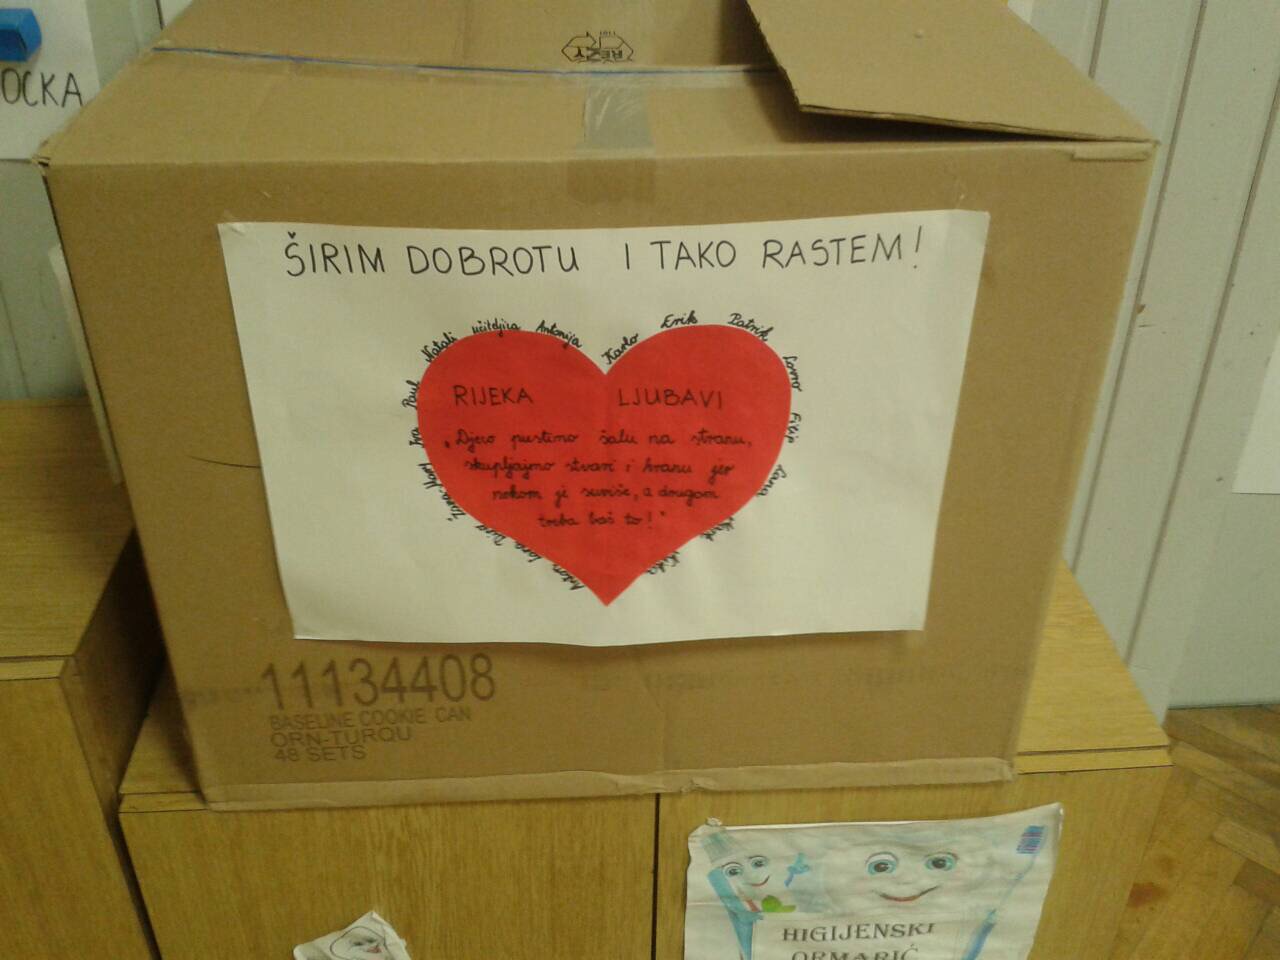 OCKA
REZY
ŠIRIM DOBROTU I TAKO RASTEM!
Paul Natali učiteljica Antonija Karlo Erik Patrik Lovro Filip Lana
Iva
Dora
Lana
RIJEKA LJUBAVI
"Djeco pustimo šalu na stranu,
skupljajmo stvari i hranu jer
nekom je suviše, a drugom
treba baš to!"
11134408
BASELINE COOKIE CAN
ORN-TURQU
48 SETS
HIGIJENSKI
ORMARIĆ